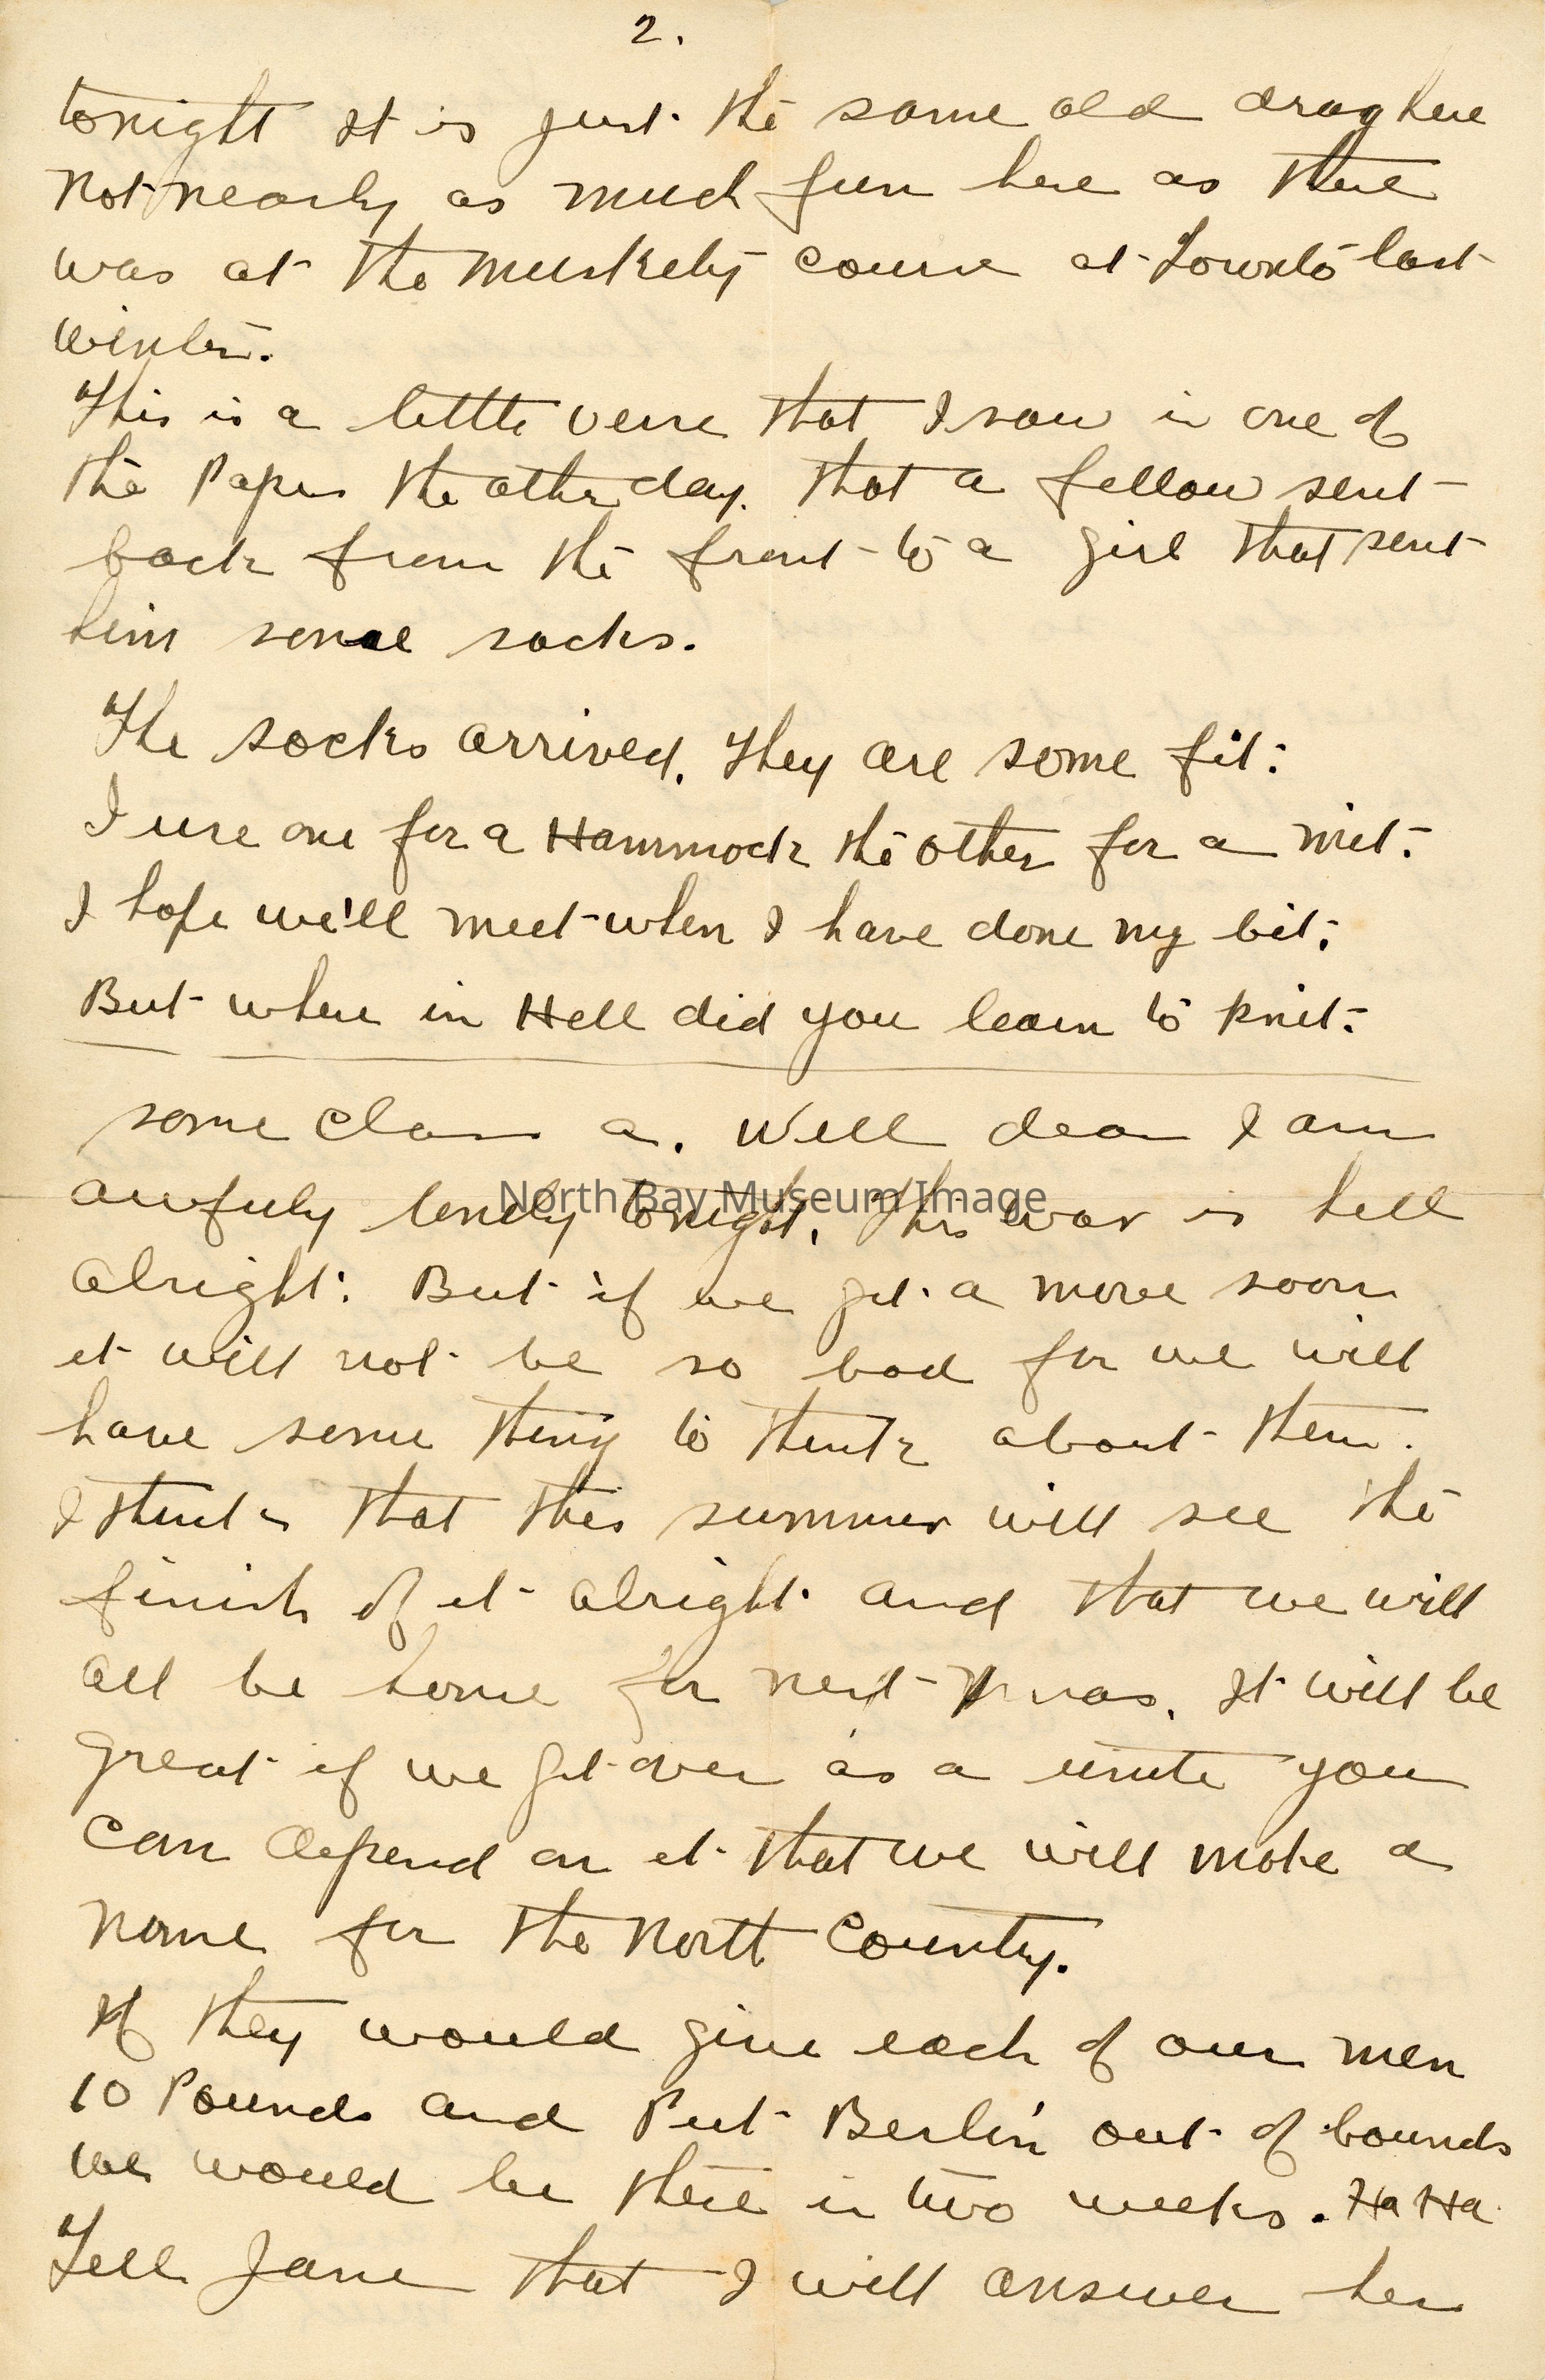 2.
tonight It is just the same old drag here
Not nearly as much fun here as there
was at the Muskety course at Toronto last
winter.
This is a little verse that I saw in one of
the Papers the other day. that a fellow sent
back from the front to a girl that sent
him some socks.
The socks arrived. They are some fit:
I use one for a Hammock the other for a mit:
I hope we'll meet when I have done my bit:
But where in Hell did you learn to knit:
some class a. Well dear I am
awfuly lonely tonight. This war is hell
alright: But if we get a move soon
it will not be so bad for we will
have some thing to think about then.
I think that this summer will see the
finish of it alright and that we will
all be home for next Xmas. It will be
great if we get over as a unite you
can depend on it that we will make a
name for the North Country.
If they would give each of our men
10 Pounds and Put Berlin out of bounds
we would be there in two weeks. Ha Ha
Tell Jane that I will answer her
North Bay Museum Image